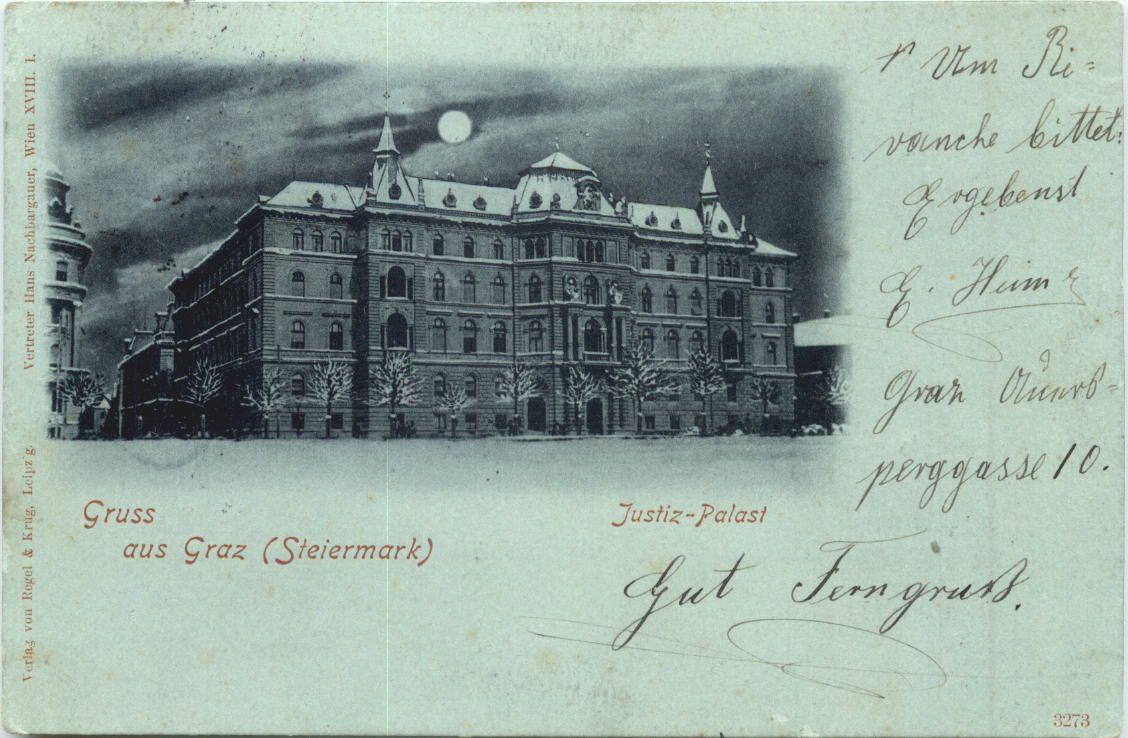 Um Ri-
vanche bittet:
Ergebenst
E. Heim
Graz Auers-
perggasse 10.
Gruss
aus Graz (Steiermark)
Justiz-Palast
Gut Ferngruß.
Verlag von Regel & Krug, Leipzig. Vertreter Hans Nachbargauer, Wien XVIII. 1.
3273